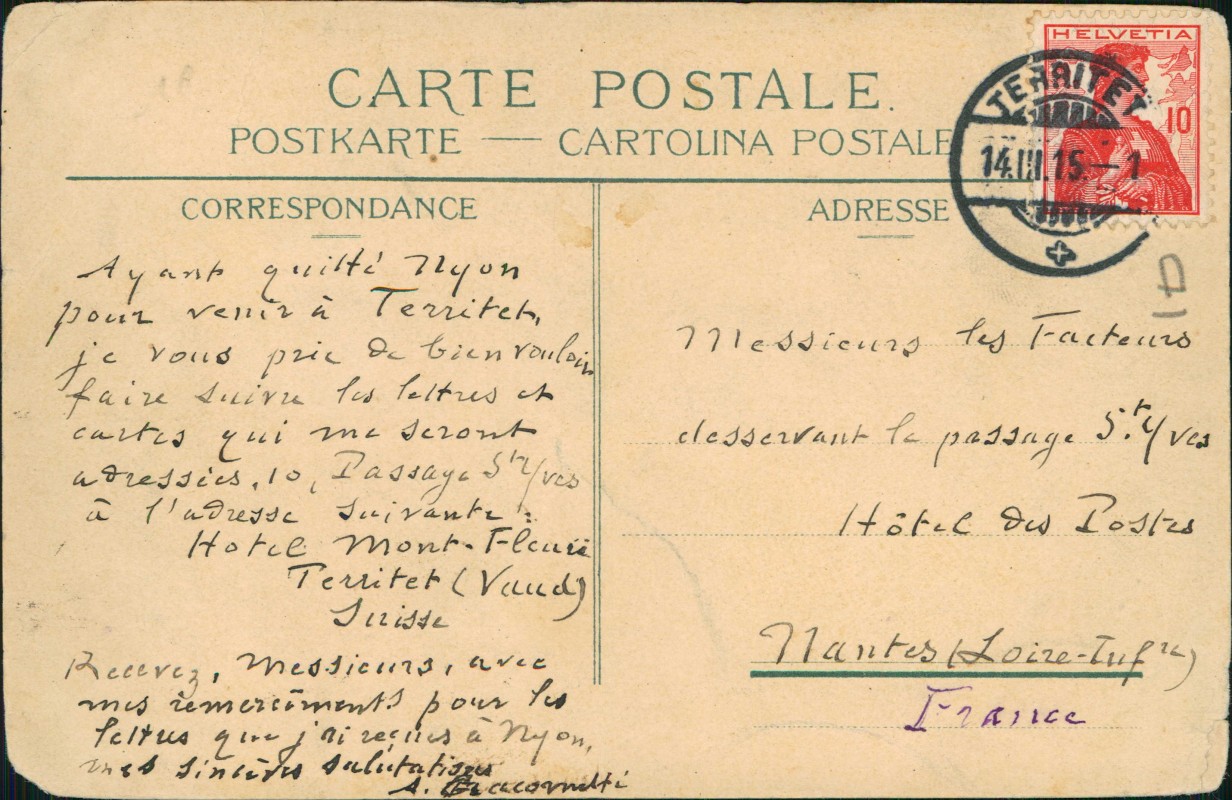 CARTE POSTALE.
POSTKARTE — CARTOLINA POSTALE
CORRESPONDANCE
Ayant quitté Nyon
pour venir à Territet,
je vous prie de bien vouloir
faire suivre les lettres et
cartes qui me seront
adressées, 10, Passage St Yves
à l'adresse suivante :
Hotel Mont-Fleuri
Territet (Vaud)
Suisse
Recevez, Messieurs, avec
mes remerciements pour les
lettres que j'ai reçues à Nyon,
mes sincères salutations
A.
ADRESSE
HELVETIA
10
TERRITET
14.III.15—1
Messieurs les Facteurs
desservant le passage St. Yves
Hôtel des Postes
Nantes (Loire-Infre)
France